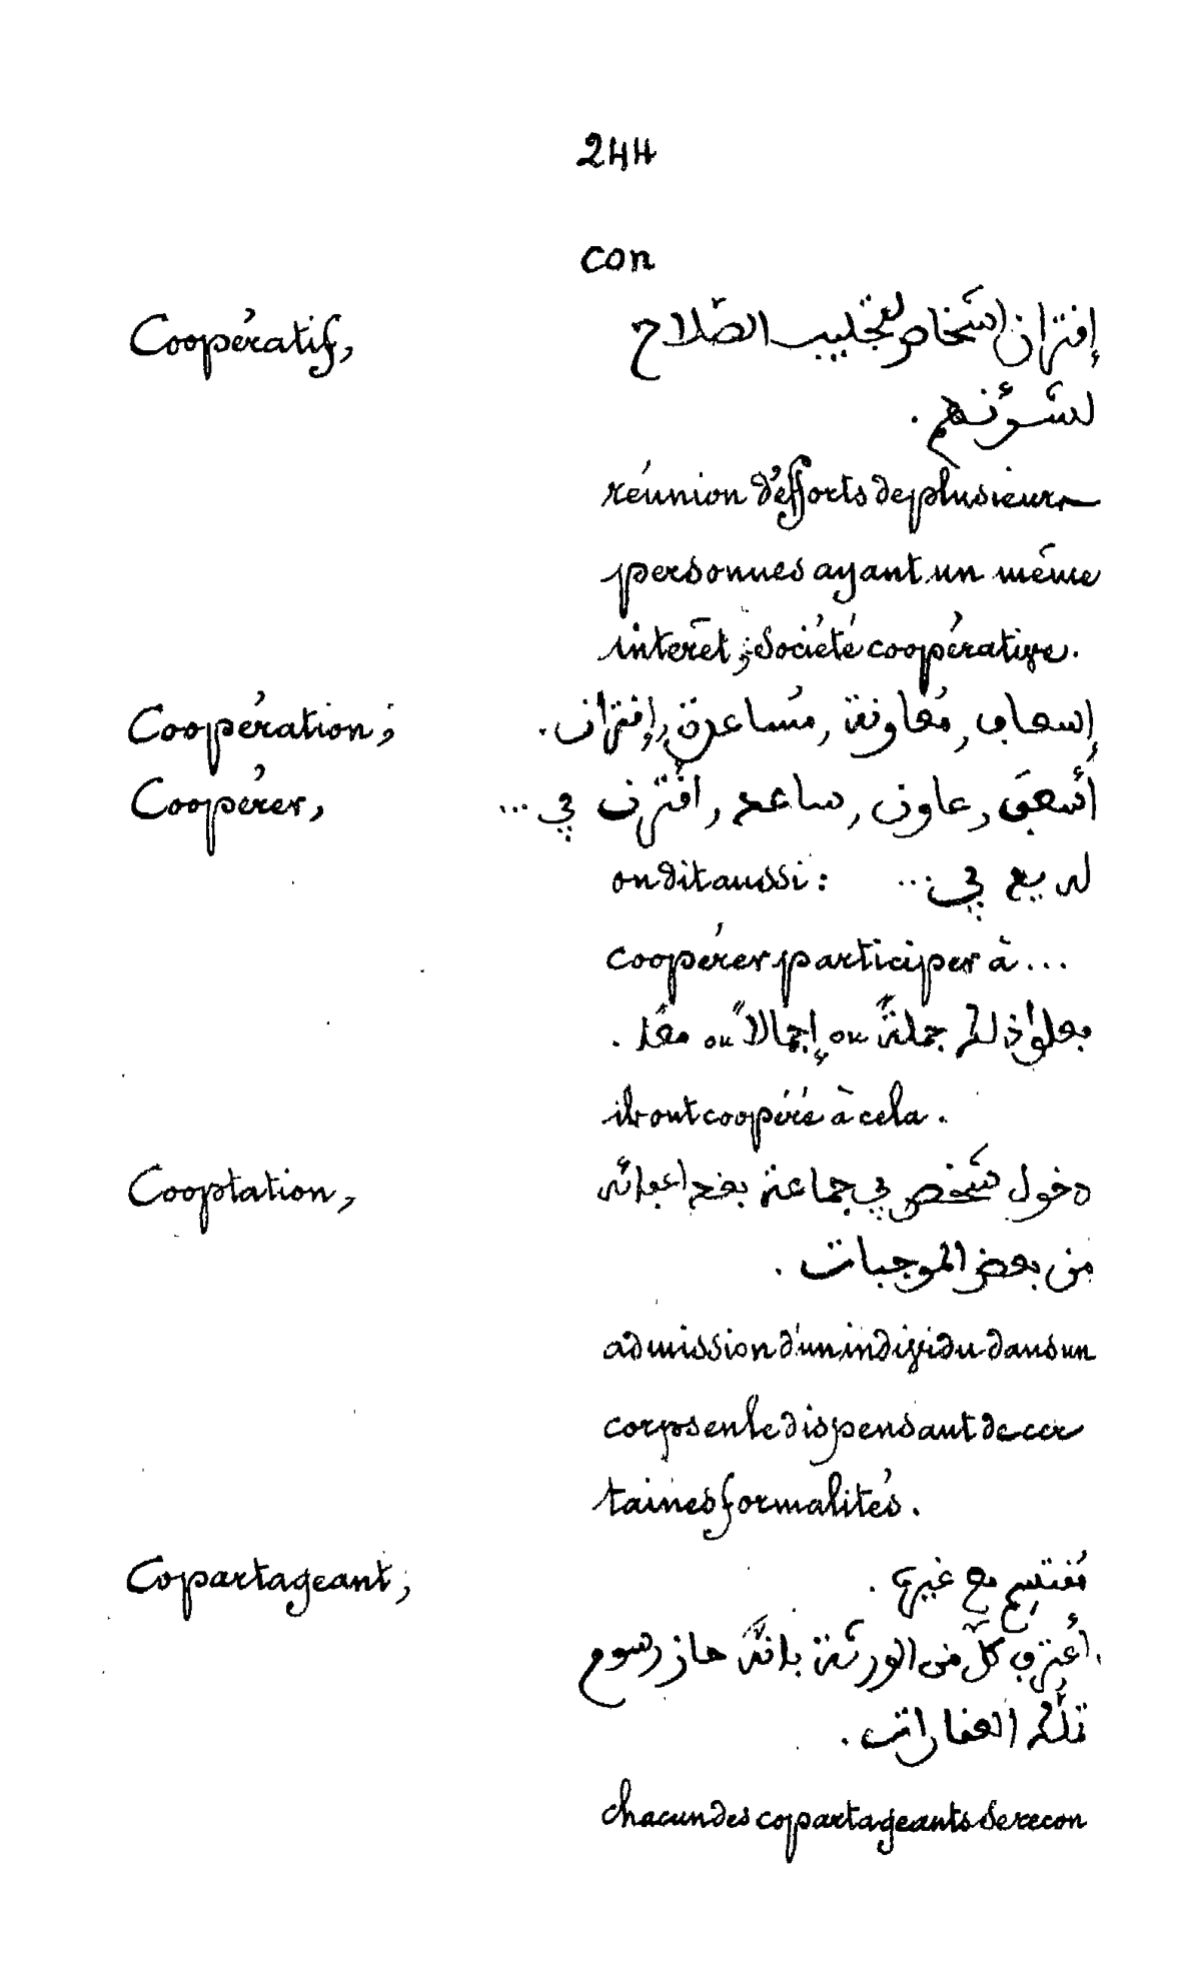 244
con
Coopératif, إفتران اشخاص لتجليب الصّلاح
لشؤنهم .
réunion d'efforts de plusieurs
personnes ayant un même
intérêt ; société coopérative.
Coopération ; إسعاف , مُعاونة , مُساعدة , إفتران .
Coopérer, أسعف , عاون , ساعد , افترن في ...
on dit aussi : له يد في ...
coopérer participer à ...
فعلوا ذلك جملةً ou إجمالاً ou معًا .
ils ont coopéré à cela .
Cooptation, دخول شخص في جماعة
من بعض الموجبات .
admission d'un individu dans un
corps en le dispensant de cer
taines formalités .
Copartageant, مُقتسِم مع غيره .
أعترف كلّ من الورثة بانّه حاز رسوم
تلك العقارات .
chacun des copartageants se recon